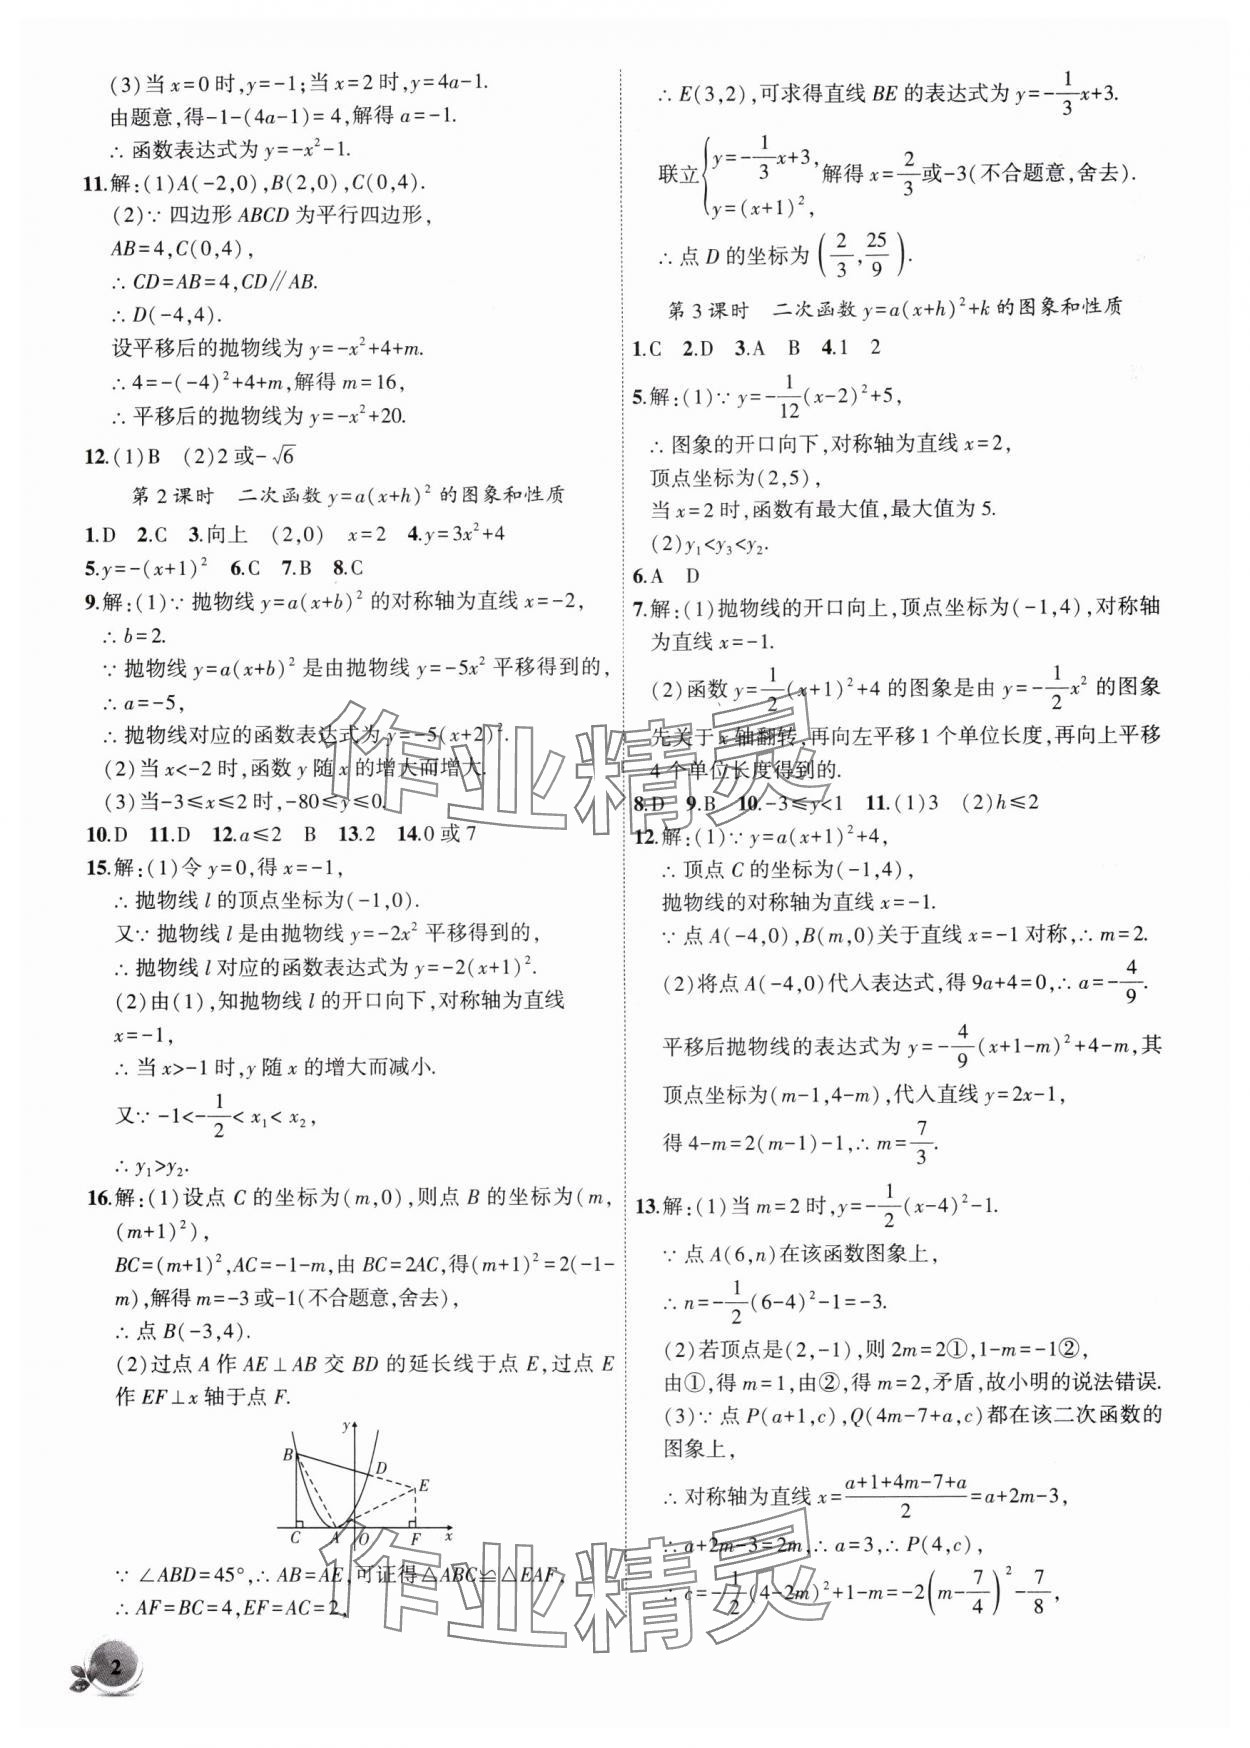 (3)当x=0时,y=-1;当x=2时,y=4a-1.
由题意,得-1-(4a-1)=4,解得a=-1.
∴函数表达式为y=-x²-1.
11.解:(1)A(-2,0),B(2,0),C(0,4).
(2)∵四边形ABCD为平行四边形,
AB=4,C(0,4),
∴CD=AB=4,CD∥AB.
∴D(-4,4).
设平移后的抛物线为y=-x²+4+m.
∴4=-(-4)²+4+m,解得m=16,
∴平移后的抛物线为y=-x²+20.
12.(1)B (2)2或-√6
第2课时 二次函数y=a(x+h)²的图象和性质
1.D 2.C 3.向上 (2,0) x=2 4.y=3x²+4
5.y=-(x+1)² 6.C 7.B 8.C
9.解:(1)∵抛物线y=a(x+b)²的对称轴为直线x=-2,
∴b=2.
∵抛物线y=a(x+b)²是由抛物线y=-5x²平移得到的,
∴a=-5,
∴抛物线对应的函数表达式为y=-5(x+2)².
(2)当x<-2时,函数y随x的增大而增大.
(3)当-3≤x≤2时,-80≤y≤0.
10.D 11.D 12.a≤2 B 13.2 14.0或7
15.解:(1)令y=0,得x=-1,
∴抛物线l的顶点坐标为(-1,0).
又∵抛物线l是由抛物线y=-2x²平移得到的,
∴抛物线l对应的函数表达式为y=-2(x+1)².
(2)由(1),知抛物线l的开口向下,对称轴为直线
x=-1,
∴当x>-1时,y随x的增大而减小.
又∵-1<-1/2<x₁<x₂,
∴y₁>y₂.
16.解:(1)设点C的坐标为(m,0),则点B的坐标为(m,
(m+1)²),
BC=(m+1)²,AC=-1-m,由BC=2AC,得(m+1)²=2(-1-
m),解得m=-3或-1(不合题意,舍去),
∴点B(-3,4).
(2)过点A作AE⊥AB交BD的延长线于点E,过点E
作EF⊥x轴于点F.
y
B
D
E
C A O F x
∵∠ABD=45°,∴AB=AE,可证得△ABC≌△EAF,
∴AF=BC=4,EF=AC=2,
2
∴E(3,2),可求得直线BE的表达式为y=-1/3x+3.
联立{y=-1/3x+3, y=(x+1)²,解得x=2/3或-3(不合题意,舍去).
∴点D的坐标为(2/3,25/9).
第3课时 二次函数y=a(x+h)²+k的图象和性质
1.C 2.D 3.A B 4.1 2
5.解:(1)∵y=-1/12(x-2)²+5,
∴图象的开口向下,对称轴为直线x=2,
顶点坐标为(2,5),
当x=2时,函数有最大值,最大值为5.
(2)y₁<y₃<y₂.
6.A D
7.解:(1)抛物线的开口向上,顶点坐标为(-1,4),对称轴
为直线x=-1.
(2)函数y=1/2(x+1)²+4的图象是由y=-1/2x²的图象
先关于x轴翻转,再向左平移1个单位长度,再向上平移
4个单位长度得到的.
8.D 9.B 10.-3≤y<1 11.(1)3 (2)h≤2
12.解:(1)∵y=a(x+1)²+4,
∴顶点C的坐标为(-1,4),
抛物线的对称轴为直线x=-1.
∵点A(-4,0),B(m,0)关于直线x=-1对称,∴m=2.
(2)将点A(-4,0)代入表达式,得9a+4=0,∴a=-4/9.
平移后抛物线的表达式为y=-4/9(x+1-m)²+4-m,其
顶点坐标为(m-1,4-m),代入直线y=2x-1,
得4-m=2(m-1)-1,∴m=7/3.
13.解:(1)当m=2时,y=-1/2(x-4)²-1.
∵点A(6,n)在该函数图象上,
∴n=-1/2(6-4)²-1=-3.
(2)若顶点是(2,-1),则2m=2①,1-m=-1②,
由①,得m=1,由②,得m=2,矛盾,故小明的说法错误.
(3)∵点P(a+1,c),Q(4m-7+a,c)都在该二次函数的
图象上,
∴对称轴为直线x=(a+1+4m-7+a)/2=a+2m-3,
∴a+2m-3=2m,∴a=3,∴P(4,c),
∴c=-1/2(4-2m)²+1-m=-2(m-7/4)²-7/8,
作业精灵
作业精灵